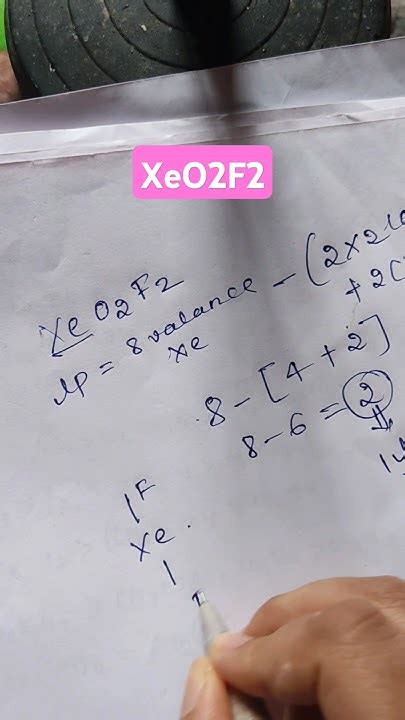 XeO2F2
XeO2F2
lp = 8 valance - (2x2(O
xe + 2(
8 - [4 + 2]
8 - 6 = 2
F
Xe